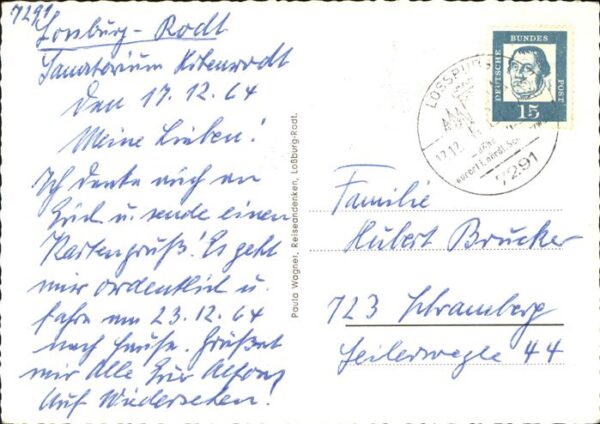 7291
Lossburg - Rodt
Sanatorium Hohenrodt
den 17.12.64
Meine Lieben!
Ich denke auch an
Euch u. sende einen
Kartengruß! Es geht
mir ordentlich u.
fahre am 23.12.64
nach Hause. Grüßet
mir Alle Euer Alfons
Auf Wiedersehen!
Paula Wagner, Reiseandenken, Loßburg-Rodt.
DEUTSCHE BUNDES POST
15
LOSSBURG
17.12.
7291
Familie
Hubert Brucker
723 Schramberg
Seilerwegle 44